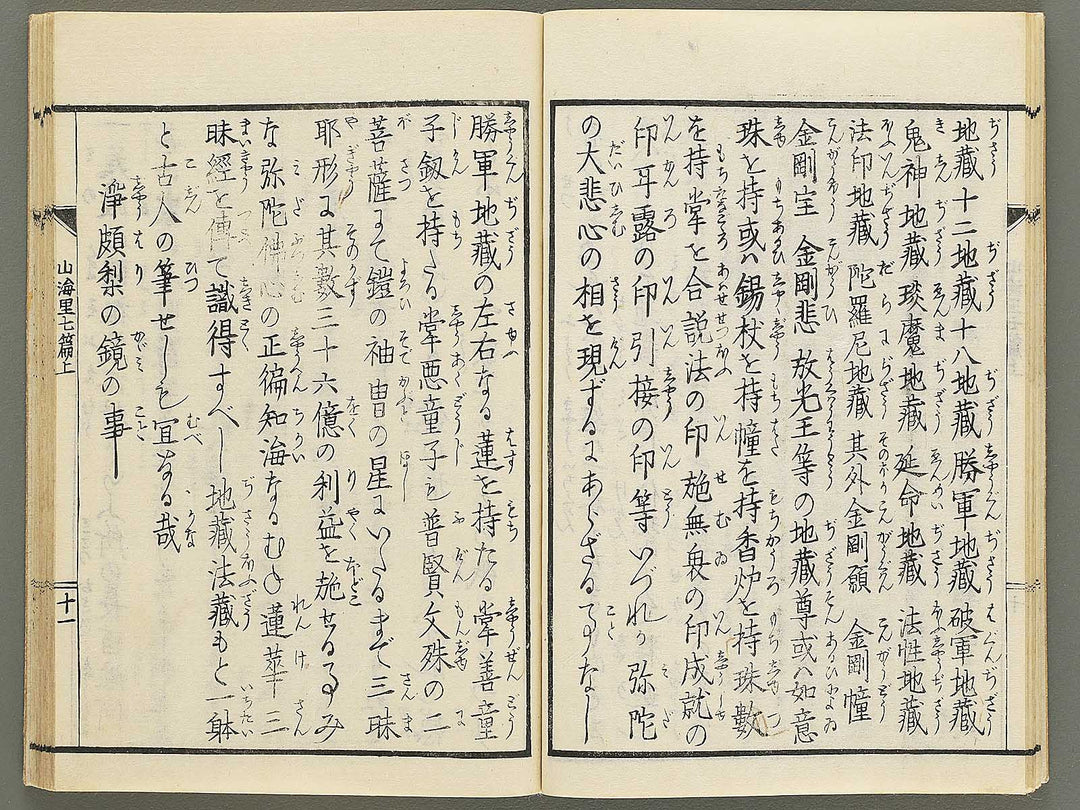 地藏十二地藏十八地藏勝軍地藏破軍地藏
鬼神地藏琰魔地藏延命地藏法性地藏
法印地藏陀羅尼地藏其外金剛願金剛幢
金剛宝金剛悲放光王等の地藏尊或ハ如意
珠を持或ハ錫杖を持幢を持香炉を持珠數
を持掌を合説法の印施無畏の印成就の
印甘露の印引接の印等いづれか弥陀
の大悲心の相を現ずるにあらざる事なし
勝軍地藏の左右なる蓮を持たる掌善童
子釼を持たる掌悪童子も普賢文殊の二
菩薩にて鎧の袖冑の星にいたるまで三昧
耶形に其數三十六億の利益を施せる事み
な弥陀佛心の正徧知海なるむね蓮華三
昧經を傳て識得すべし地藏法藏もと一躰
と古人の筆せしも宜なる哉
淨頗梨の鏡の事
山海里七篇上
十一